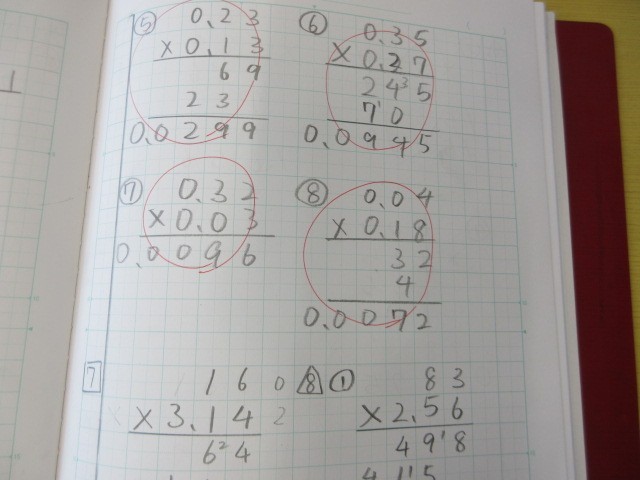 ⑤ 0.23
×0.13
69
23
0.0299
⑥ 0.35
×0.27
24³5
7¹0
0.0945
⑦ 0.32
×0.03
0.0096
⑧ 0.04
×0.18
32
4
0.0072
7 160
×3.142
6²4
8 ① 83
×2.56
49¹8
41¹5